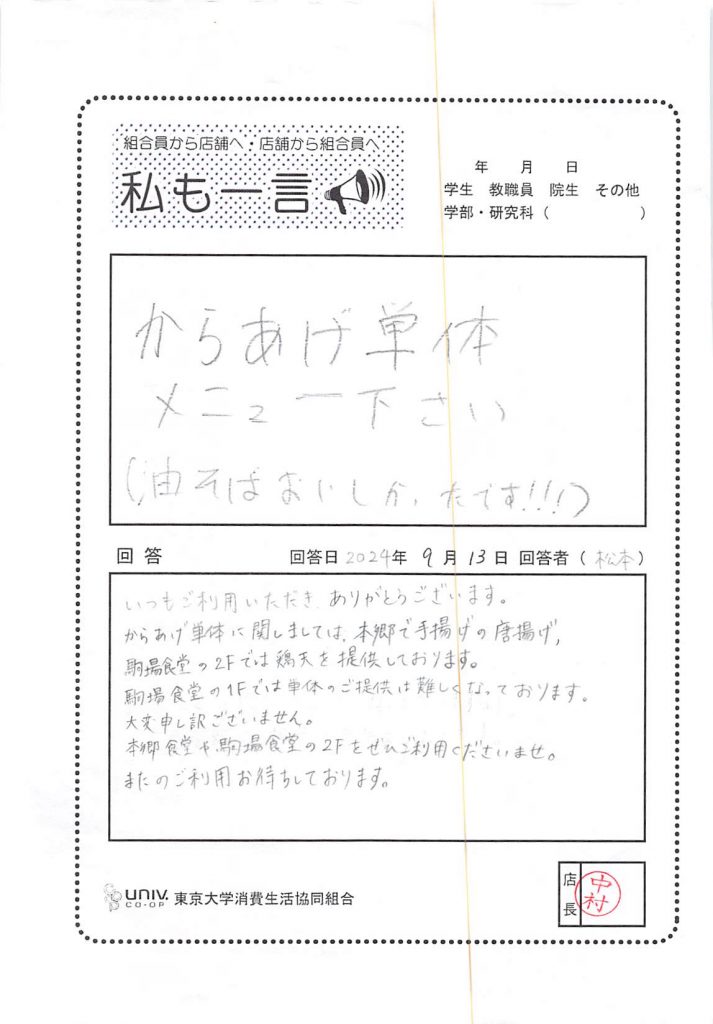 組合員から店舗へ・店舗から組合員へ
私も一言
年 月 日
学生 教職員 院生 その他
学部・研究科（ ）
からあげ単体
メニュー下さい
(油そばおいしかったです!!!)
回答 回答日 2024年 9月13日 回答者（松本）
いつもご利用いただき、ありがとうございます。
からあげ単体に関しましては、本郷で手揚げの唐揚げ,
駒場食堂の2Fでは鶏天を提供しております。
駒場食堂の1Fでは単体のご提供は難しくなっております。
大変申し訳ございません。
本郷食堂や駒場食堂の2Fをぜひご利用くださいませ。
またのご利用お待ちしております。
UNIV. CO-OP 東京大学消費生活協同組合
店長 中村